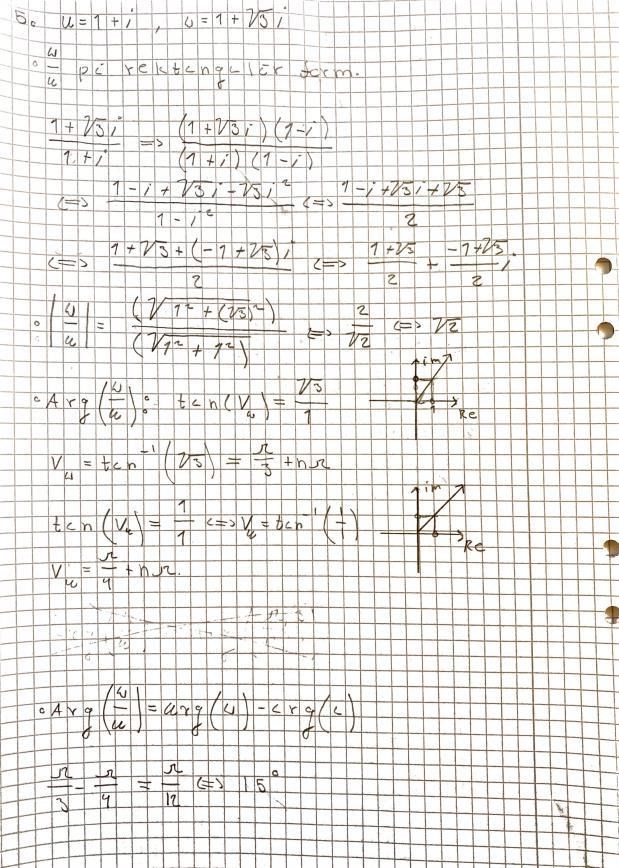 5. u = 1 + i , ω = 1 + √3 i
∘ ω/u på rektangulär form.
(1 + √3 i)/(1 + i) ⟹ ((1 + √3 i)(1 - i))/((1 + i)(1 - i))
⟺ (1 - i + √3 i - √3 i²)/(1 - i²) ⟺ (1 - i + √3 i + √3)/2
⟺ (1 + √3 + (-1 + √3)i)/2 ⟺ (1 + √3)/2 + (-1 + √3)/2 i
∘ |ω/u| = (√(1² + (√3)²))/(√(1² + 1²)) ⟺ 2/√2 ⟺ √2
im
∘ Arg(ω/u): tan(V_ω) = √3/1
1 Re
V_ω = tan⁻¹(√3) = π/3 + nπ
im
tan(V_u) = 1/1 ⟺ V_u = tan⁻¹(1/1)
Re
V_u = π/4 + nπ.
∘ Arg(ω/u) = arg(ω) - arg(u)
π/3 - π/4 = π/12 ⟺ 15°